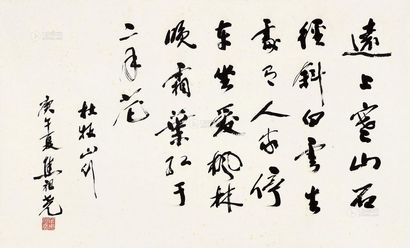 遠上寒山石
徑斜白雲生
處有人家停
車坐愛楓林
晚霜葉紅于
二月花
杜牧山行
庚午夏集祖堯